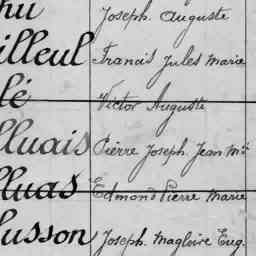 hu Joseph. Auguste
illeul Francis Jules Marie
lé Victor Auguste
lluais Pierre Joseph Jean Mie
lluas Edmond Pierre Marie
usson Joseph. Magloire Eug.